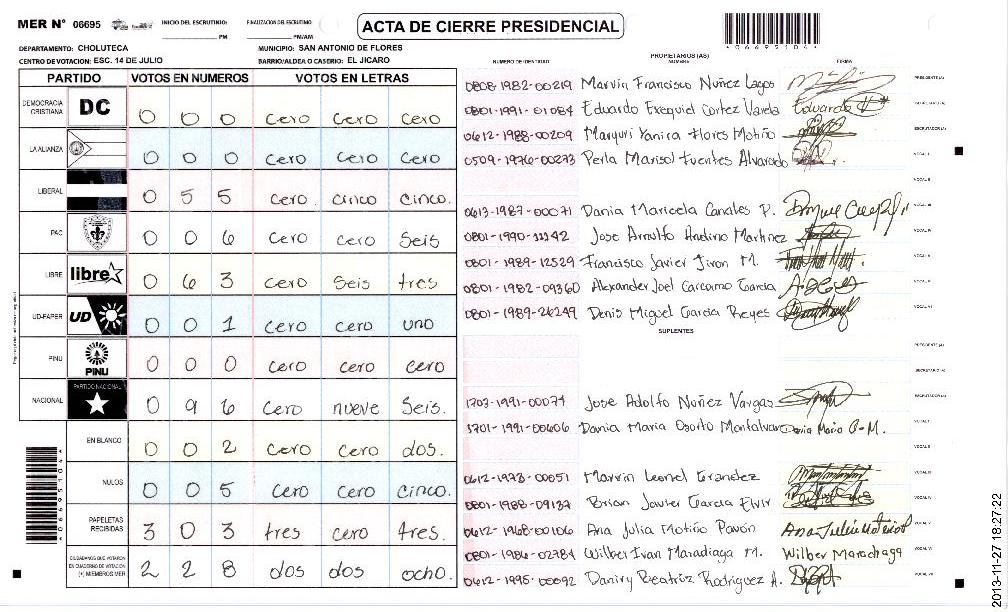 MER N° 06695 INICIO DEL ESCRUTINIO: PM FINALIZACION DEL ESCRUTINIO: PM/AM ACTA DE CIERRE PRESIDENCIAL 066951041
DEPARTAMENTO: CHOLUTECA MUNICIPIO: SAN ANTONIO DE FLORES
CENTRO DE VOTACION: ESC. 14 DE JULIO BARRIO/ALDEA O CASERIO: EL JICARO
PARTIDO VOTOS EN NUMEROS VOTOS EN LETRAS
DEMOCRACIA CRISTIANA DC 0 0 0 cero cero cero
LA ALIANZA 0 0 0 cero cero cero
LIBERAL 0 5 5 cero cinco cinco.
PAC 0 0 6 cero cero seis
LIBRE libre 0 6 3 cero seis tres
UD-FAPER UD 0 0 1 cero cero uno
PINU PINU 0 0 0 cero cero cero
NACIONAL PARTIDO NACIONAL 0 9 6 cero nueve seis.
EN BLANCO 0 0 2 cero cero dos.
NULOS 0 0 5 cero cero cinco.
PAPELETAS RECIBIDAS 3 0 3 tres cero tres.
CIUDADANOS QUE VOTARON EN CUADERNO DE VOTACION (+) MIEMBROS MER 2 2 8 dos dos ocho.
PROPIETARIOS (AS)
NUMERO DE IDENTIDAD NOMBRE FIRMA
0808-1982-00219 Marvin Francisco Nuñez Lagos PRESIDENTE(A)
0801-1991-01084 Eduardo Exequiel Cortez Varela Eduardo SECRETARIO(A)
0612-1988-00209 Maryuri Yanira Flores Motiño ESCRUTADOR(A)
0509-1976-00273 Perla Marisol Fuentes Alvarado VOCAL I
VOCAL II
0613-1987-00071 Dania Maricela Canales P. VOCAL III
0801-1990-11142 Jose Arnulfo Andino Martinez VOCAL IV
0801-1989-12529 Francisco Javier Jiron M. VOCAL V
0801-1982-09360 Alexander Joel Carcamo Garcia VOCAL VI
0801-1989-26249 Denis Miguel Garcia Reyes VOCAL VII
SUPLENTES
PRESIDENTE(A)
SECRETARIO(A)
1703-1991-00074 Jose Adolfo Nuñez Vargas ESCRUTADOR(A)
1701-1991-00606 Dania Maria Osorto Montalvan Dania Maria O-M. VOCAL I
VOCAL II
0612-1973-00051 Marvin Leonel Grandez VOCAL III
0801-1988-09137 Brian Javier Garcia Elvir VOCAL IV
0612-1968-00106 Ana Julia Motiño Pavon Ana Julia Motiño VOCAL V
0801-1986-02784 Wilber Ivan Maradiaga M. Wilber Maradiaga VOCAL VI
0612-1995-00092 Daniry Beatriz Rodriguez A. VOCAL VII
066951041
2013-11-27 18:27:22